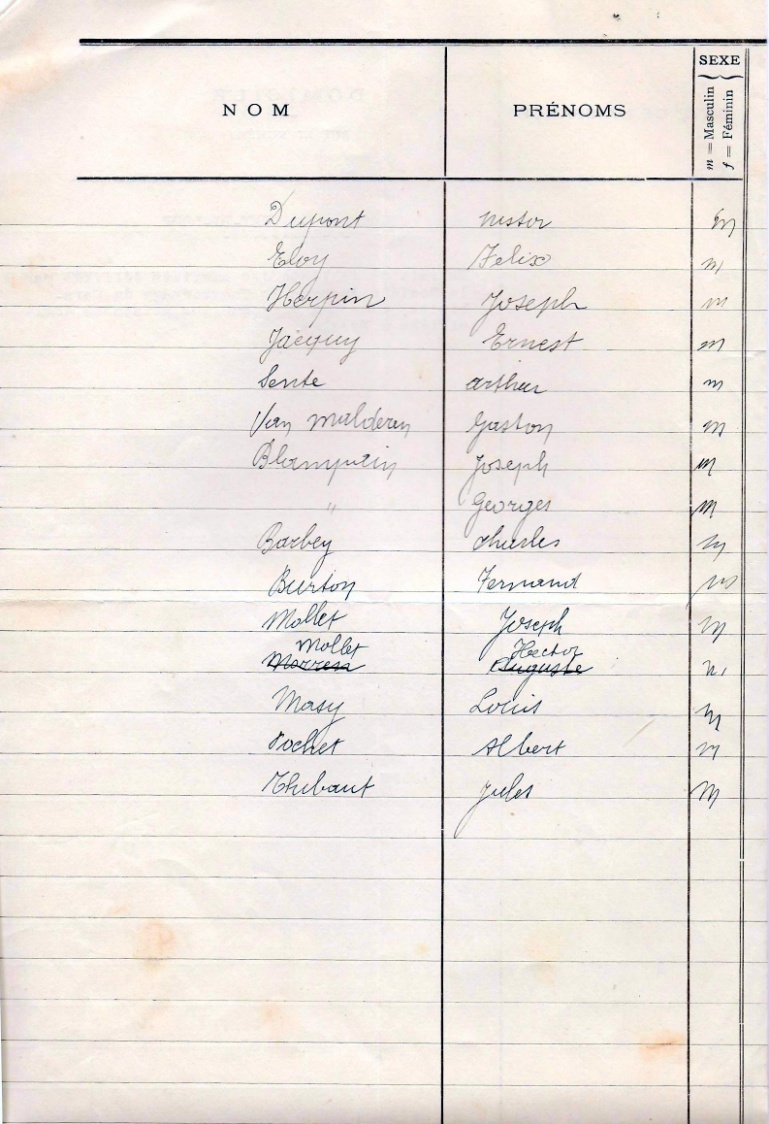 NOM PRÉNOMS SEXE
m = Masculin
f = Féminin
Dupont Nestor m
Eloy Felix m
Herpin Joseph m
Jacquy Ernest m
Sente Arthur m
Van Malderen Gaston m
Blampain Joseph m
" Georges m
Barbey Charles m
Burton Fernand m
Mollet Joseph m
Mollet Hector
Auguste m
Masy Louis m
Pochet Albert m
Thibaut Jules m